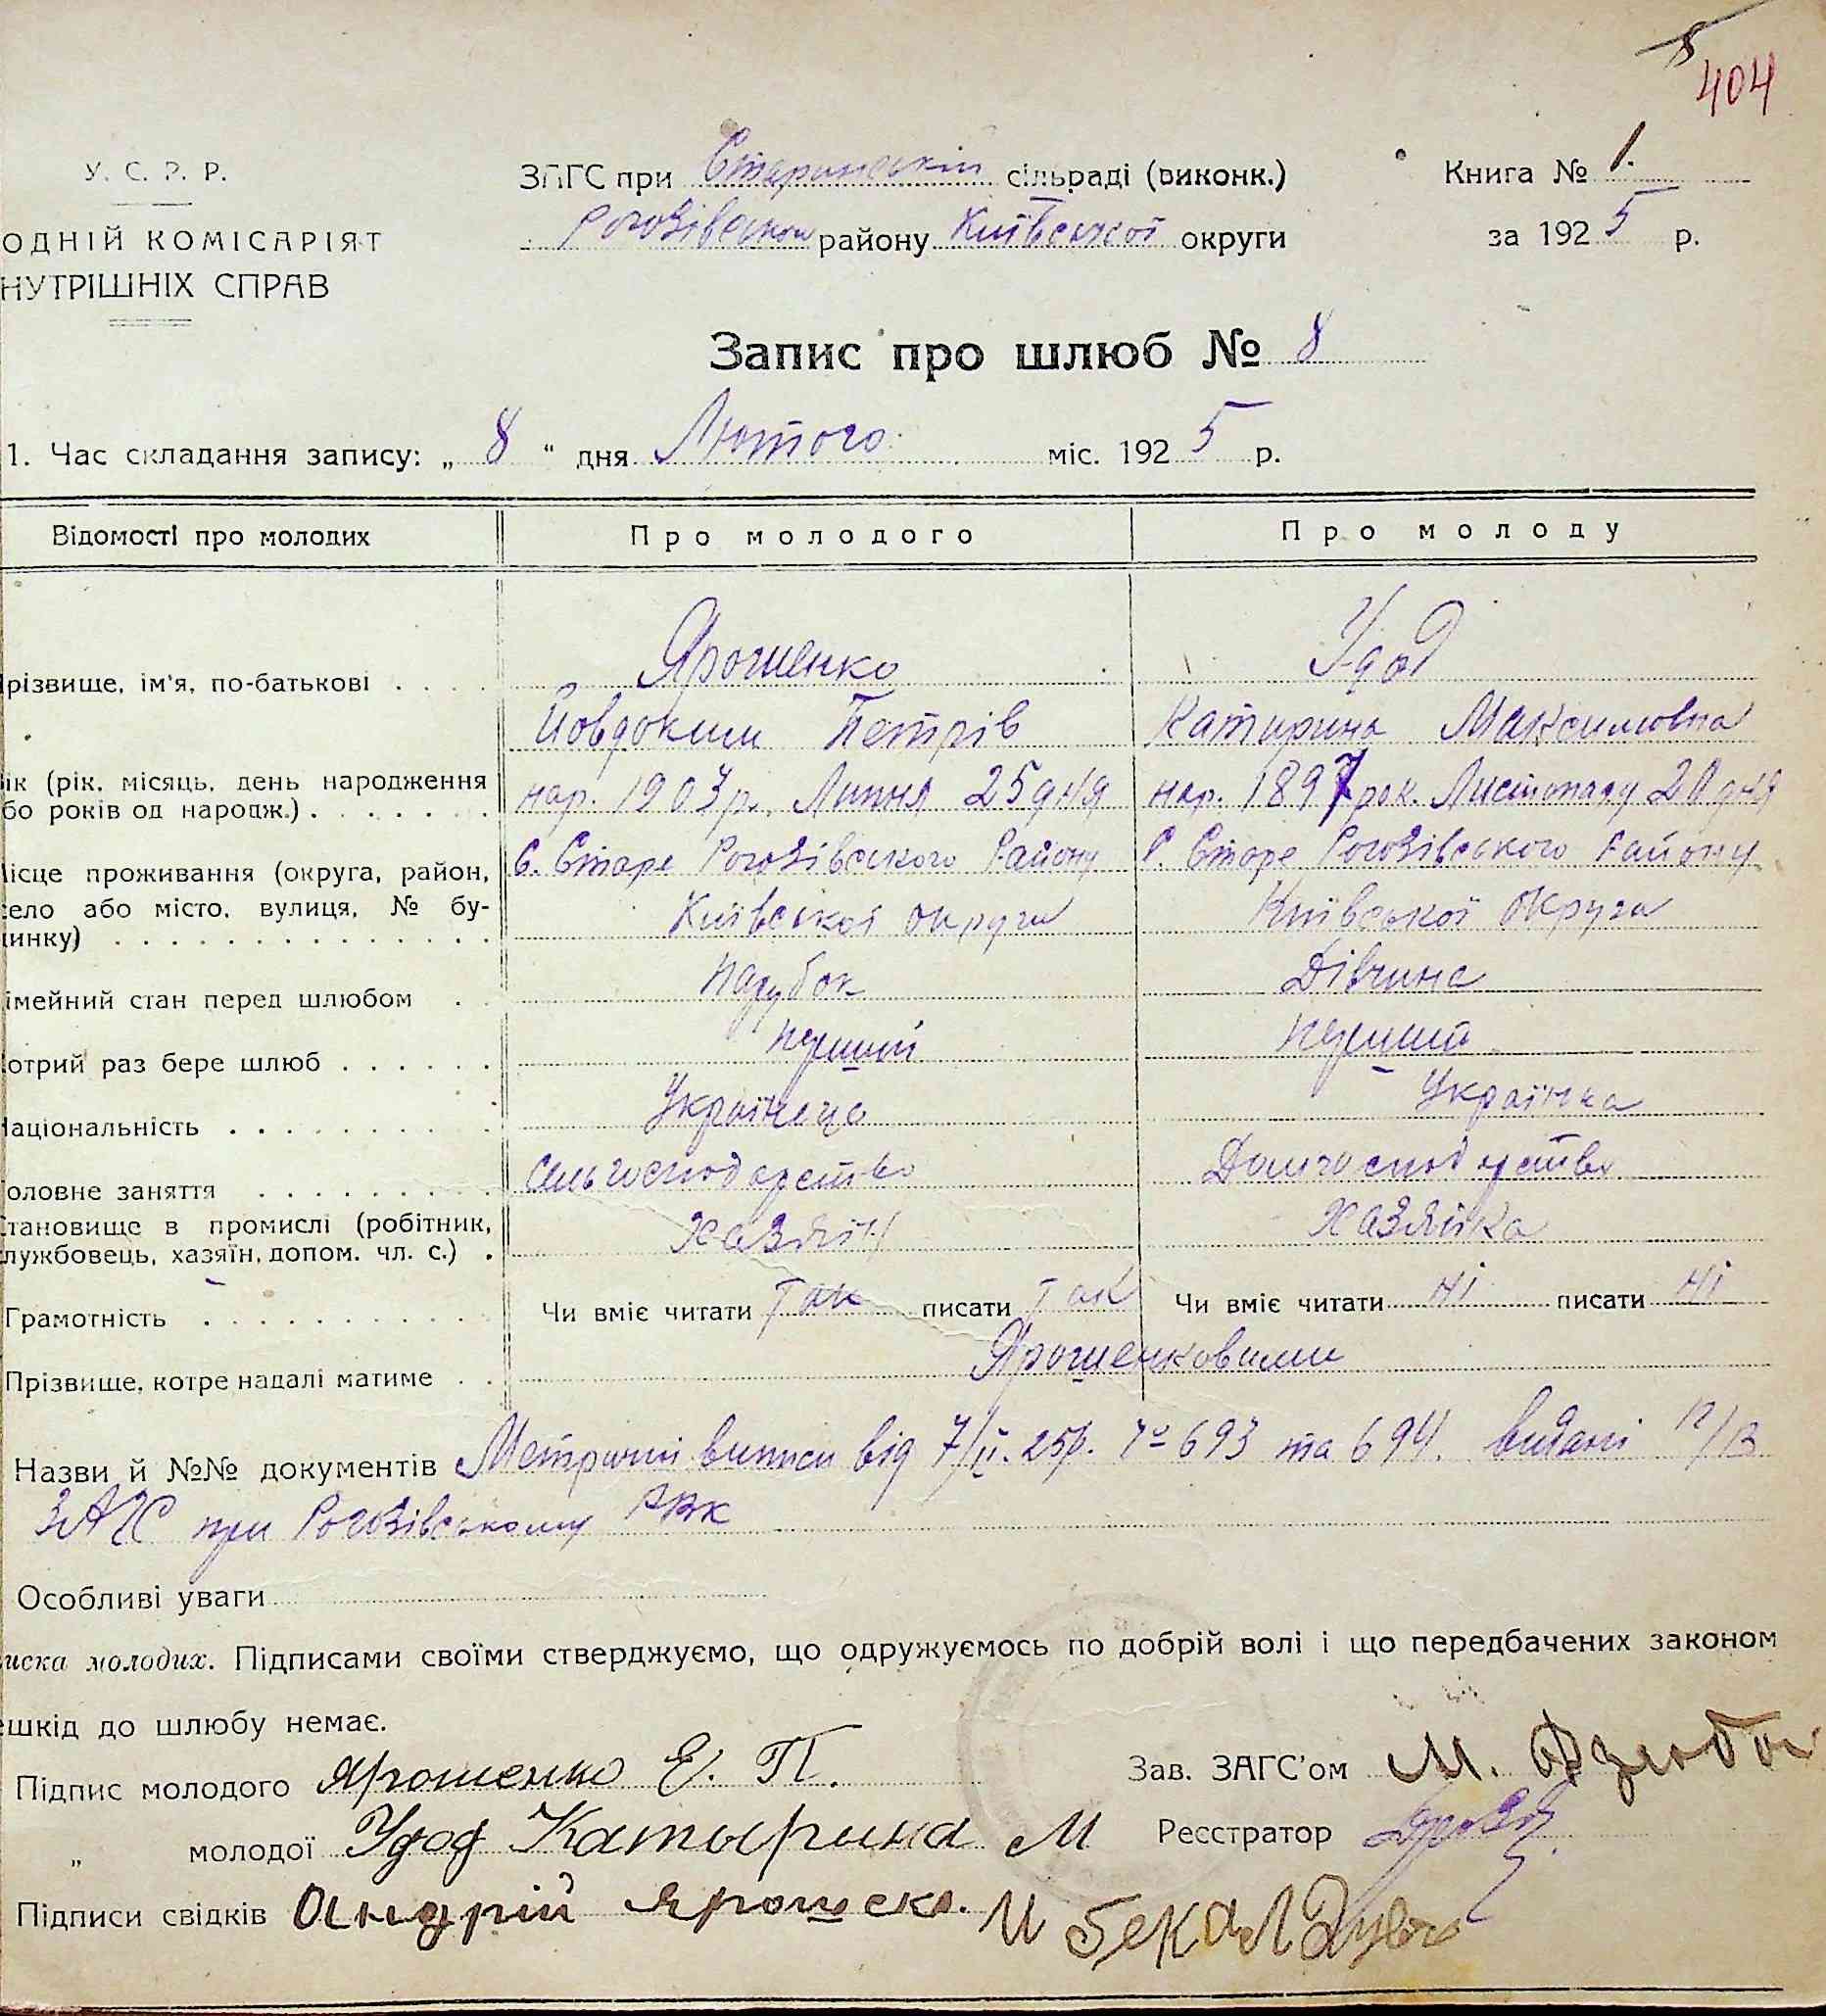 8
404
У. С. Р. Р.
ЗАГС при Старинській сільраді (виконк.)
Книга № 1.
ОДНІЙ КОМІСАРІЯТ
Рогозівськом району Київської округи
за 1925 р.
НУТРІШНІХ СПРАВ
Запис про шлюб № 8
1. Час складання запису: „ 8 “ дня Лютого міс. 1925 р.
Відомості про молодих
Про молодого
Про молоду
Ярошенко
Удод
різвище, ім'я, по-батькові . . . .
Йовдоким Петрів
Катирина Максимовна
ік (рік, місяць, день народження
бо років од народж.) . . . . . . .
нар. 1903 р. Липня 25 дня
нар. 1897 рок. Листопаду 20 дня
ісце проживання (округа, район,
с. Старе Рогозівського Району
С. Старе Рогозівського Району
ело або місто, вулиця, № бу-
инку) . . . . . . . . . . . . . .
Київської округи
Київської округи
імейний стан перед шлюбом . .
парубок
Дівчина
отрий раз бере шлюб . . . . . .
перший
перший
аціональність . . . . . . . . . .
Українець
Українка
оловне заняття . . . . . . . . .
Сільгосподарство
Домгосподарство
тановище в промислі (робітник,
лужбовець, хазяїн, допом. чл. с.) .
хазяїн
хазяйка
Грамотність . . . . . . . . . . .
Чи вміє читати так писати так
Чи вміє читати ні писати ні
Прізвище, котре надалі матиме . .
Ярошенковими
Назви й №№ документів Метричні виписи від 7/II. 25р. № 693 та 694. видані
ЗАГС при Рогозівському РВК
Особливі уваги
иска молодих. Підписами своїми стверджуємо, що одружуємось по добрій волі і що передбачених законом
ешкід до шлюбу немає.
Підпис молодого Ярошенко Е. П.
Зав. ЗАГС'ом М.
„ молодої Удод Катырина М
Реєстратор
Підписи свідків Андрій Ярошеко. И